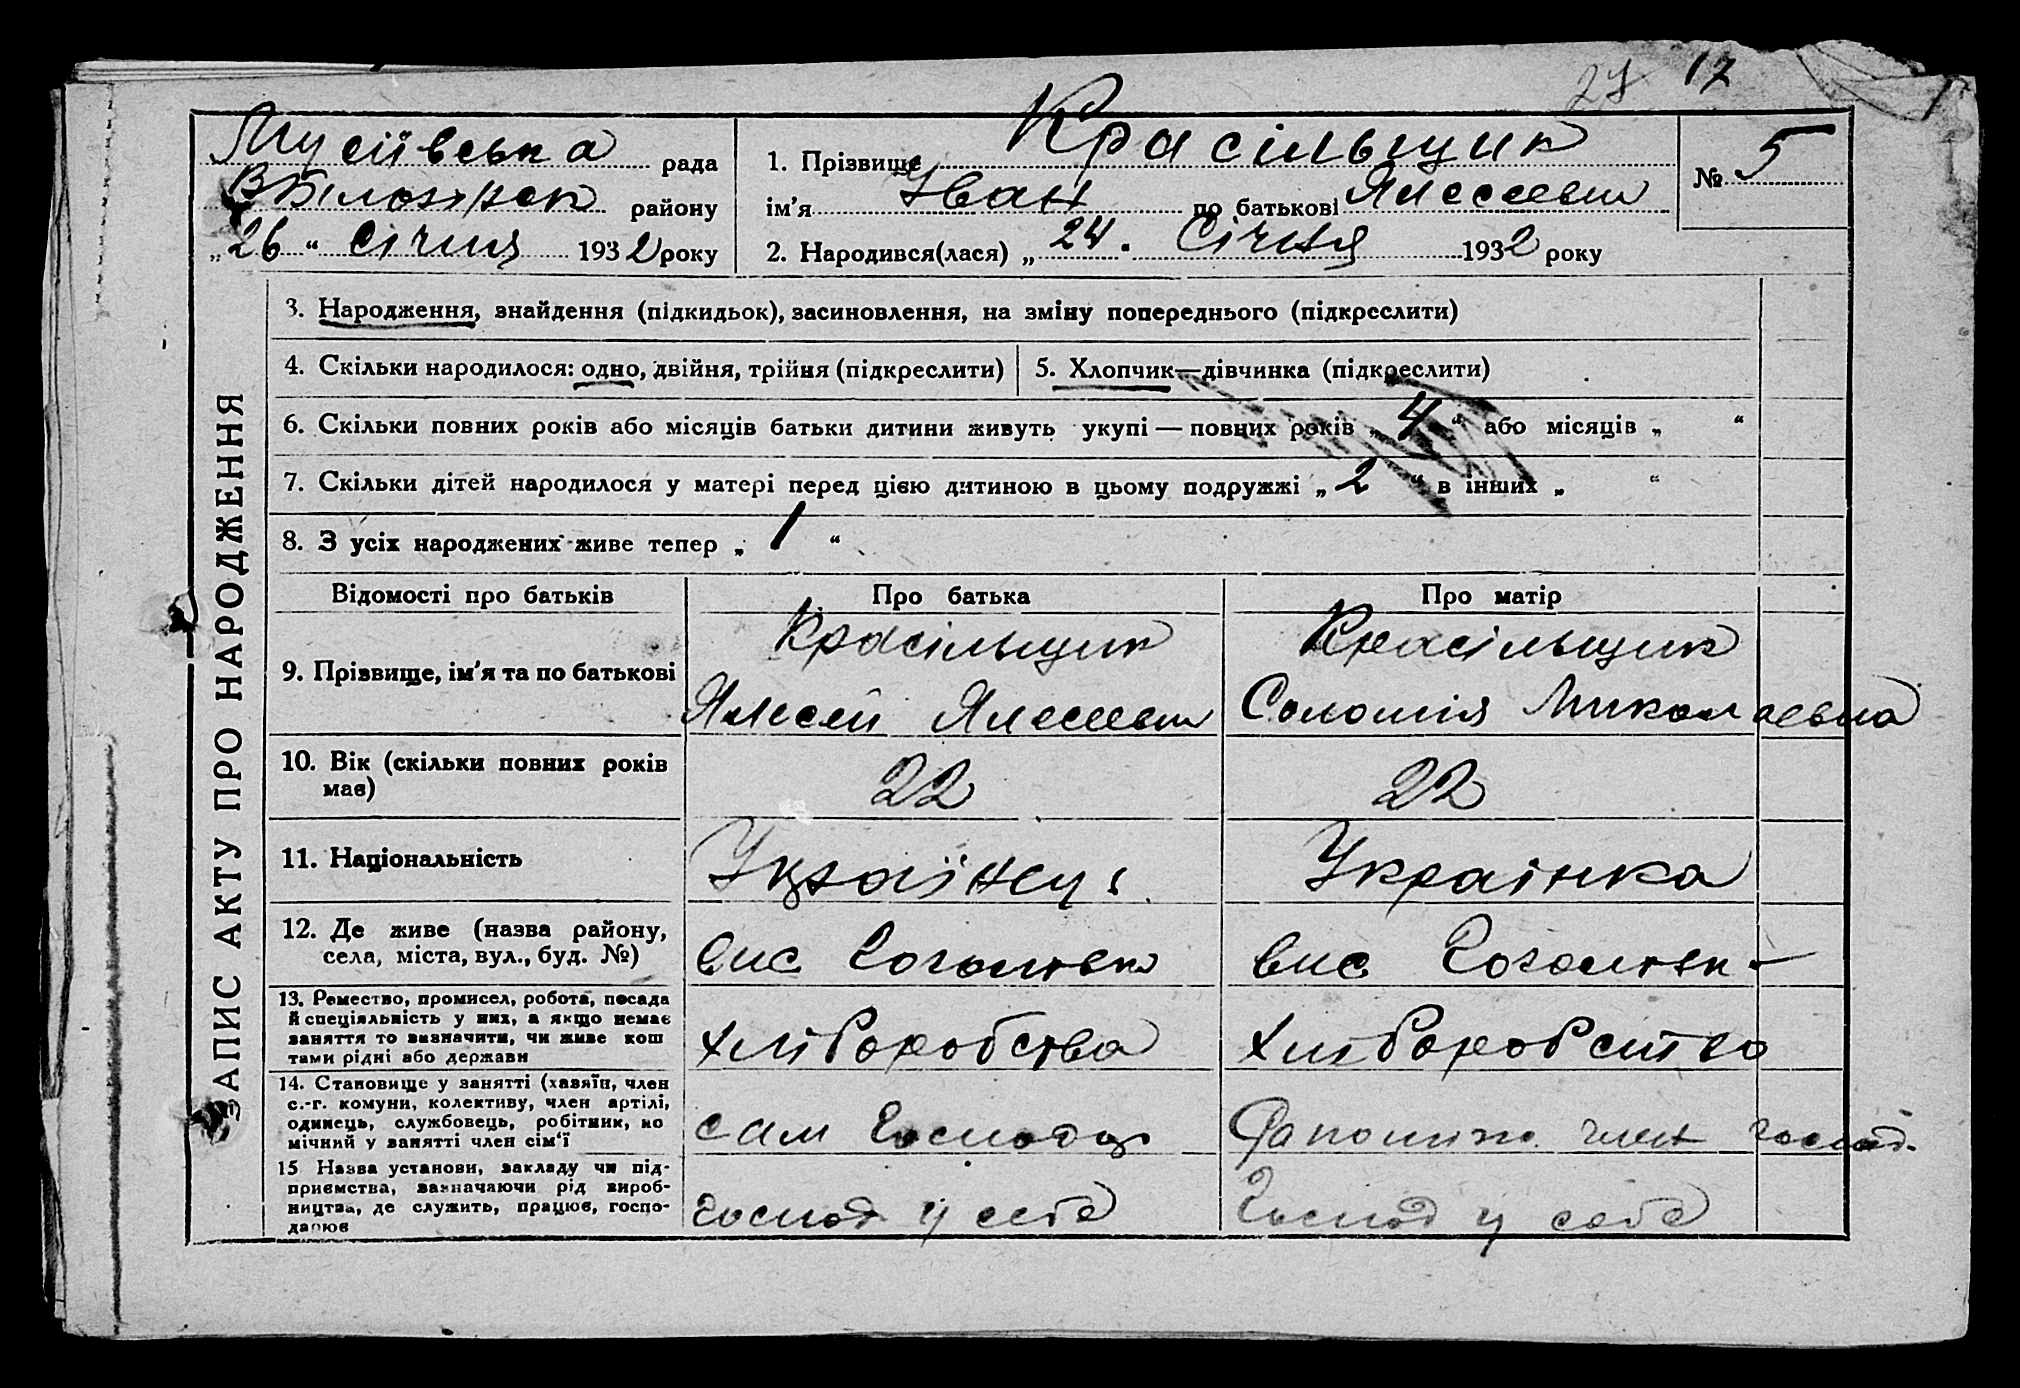 17
Мусіївська рада
В Білозірск району
„26“ Січня 1932 року
1. Прізвище Красільщик
ім'я Іван по батькові Алексеевич
2. Народився(лася) „24. Січня 1932 року
№ 5
ЗАПИС АКТУ ПРО НАРОДЖЕННЯ
3. Народження, знайдення (підкидьок), засиновлення, на зміну попереднього (підкреслити)
4. Скільки народилося: одно, двійня, трійня (підкреслити)
5. Хлопчик—дівчинка (підкреслити)
6. Скільки повних років або місяців батьки дитини живуть укупі — повних років „4“ або місяців „ “
7. Скільки дітей народилося у матері перед цією дитиною в цьому подружжі „2“ в інших „ “
8. З усіх народжених живе тепер „1“
Відомості про батьків
Про батька
Про матір
9. Прізвище, ім'я та по батькові
Красільщик
Алексей Алексеевич
Красільщик
Соломія Миколаевна
10. Вік (скільки повних років
має)
22
22
11. Національність
Українець
Українка
12. Де живе (назва району,
села, міста, вул., буд. №)
вис
вис
13. Ремество, промисел, робота, посада
й спеціяльність у них, а якщо немає
заняття то визначити, чи живе кош
тами рідні або держави
хліборобства
хліборобство
14. Становище у занятті (хазяїн, член
с.-г. комуни, колективу, член артілі,
одинець, службовець, робітник, по
мічний у занятті член сім'ї
сам Господар
член господ.
15 Назва установи, закладу чи під-
приємства, зазначаючи рід вироб-
ництва, де служить, працює, госпо-
дарює
Господ у себе
Господ у себе